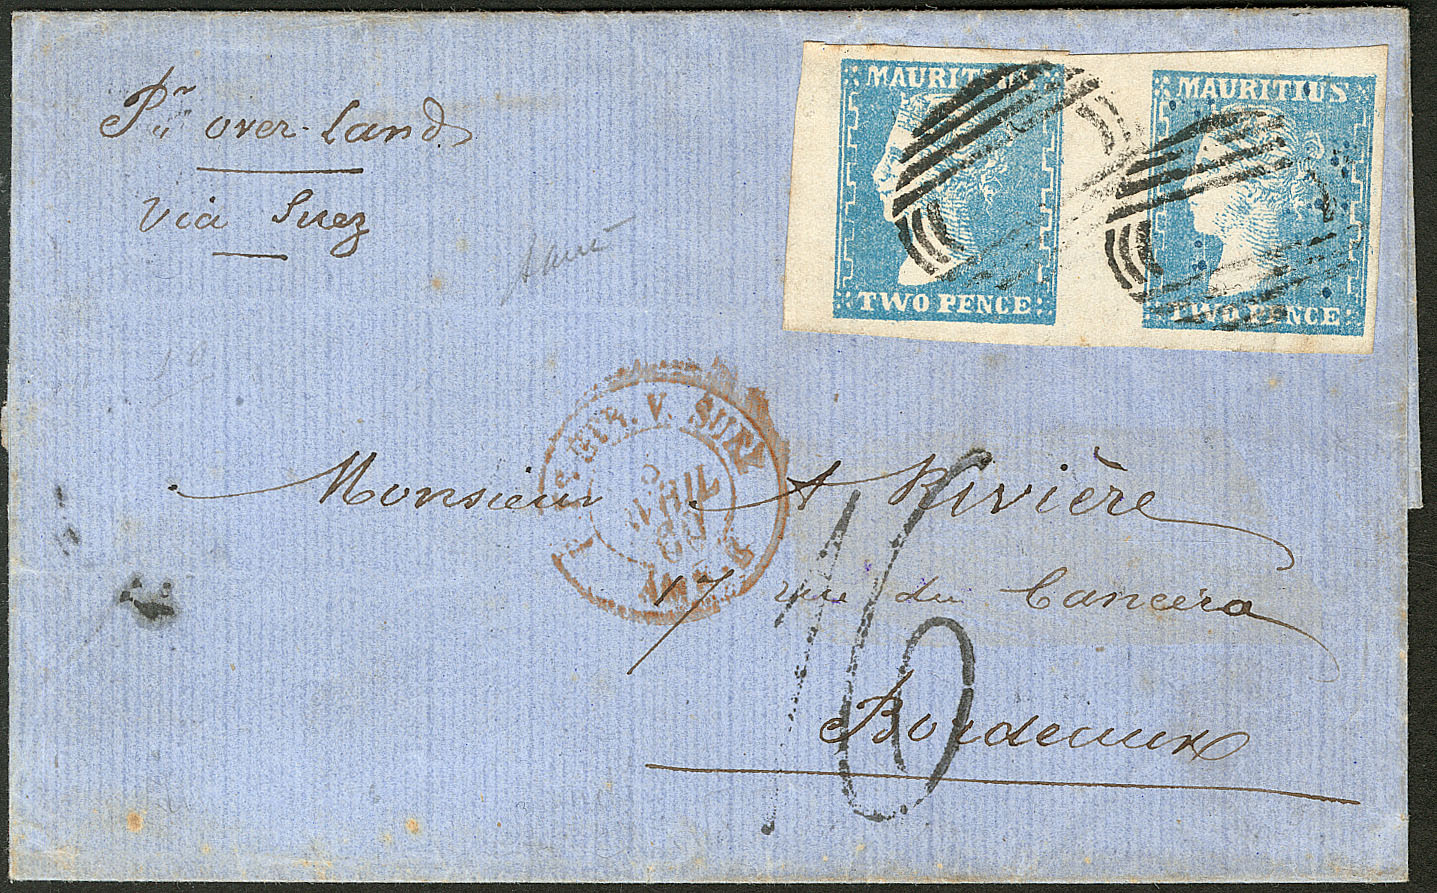 Pr over-land
via Suez
MAURITIUS
TWO PENCE
MAURITIUS
TWO PENCE
V. SUEZ
AVRIL
60
Monsieur A Rivière
17 rue du Cancera
Bordeaux
16